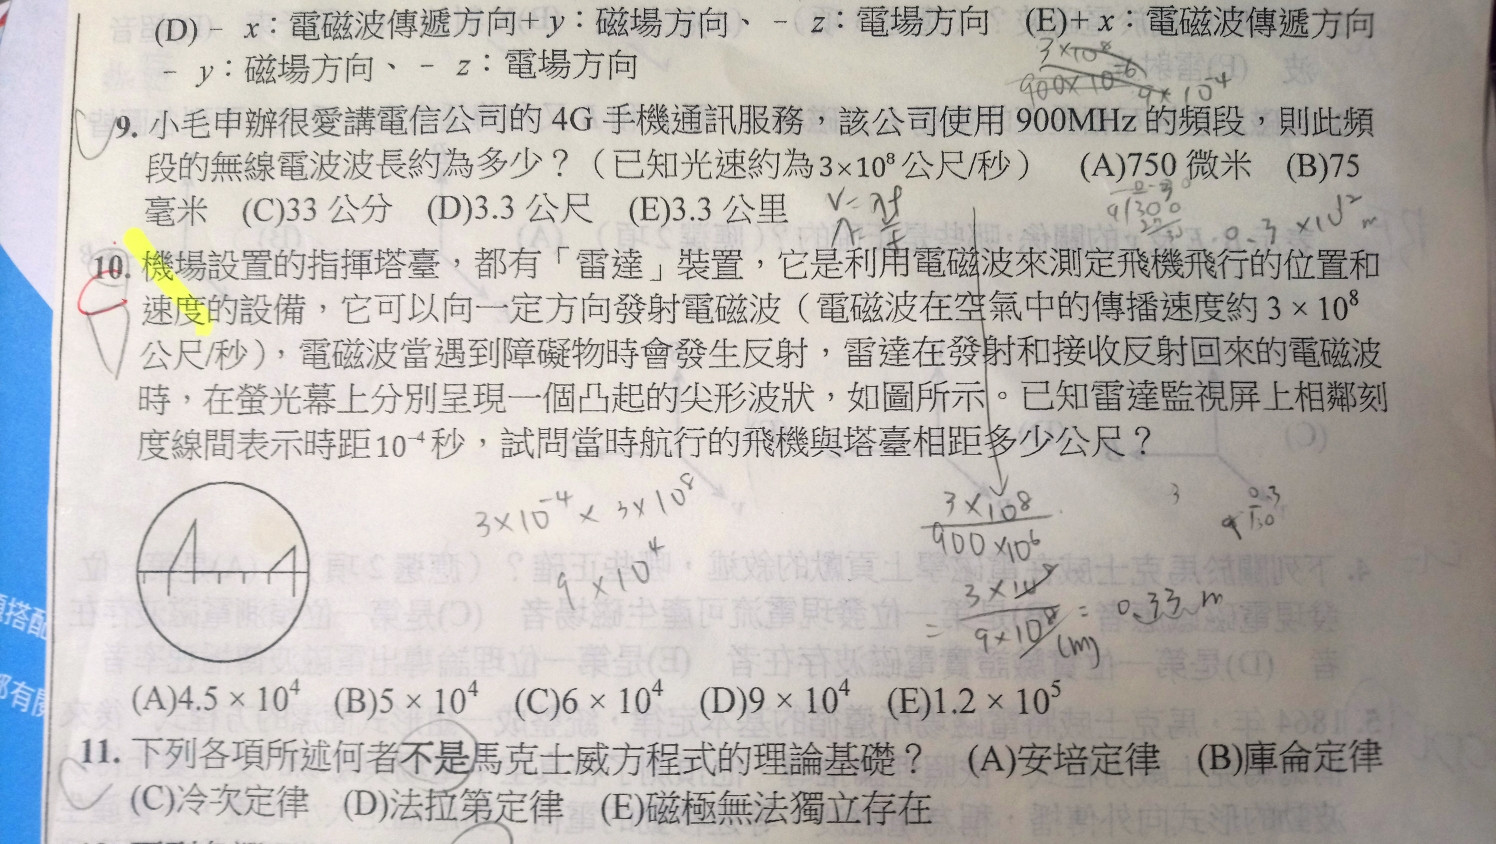 (D)－ x：電磁波傳遞方向+ y：磁場方向、－ z：電場方向 (E)+ x：電磁波傳遞方向
－ y：磁場方向、－ z：電場方向
3×10⁸
900×10⁻⁶
9×10⁻⁴
9. 小毛申辦很愛講電信公司的 4G 手機通訊服務，該公司使用 900MHz 的頻段，則此頻
段的無線電波波長約為多少？（已知光速約為 3×10⁸ 公尺/秒） (A)750 微米 (B)75
毫米 (C)33 公分 (D)3.3 公尺 (E)3.3 公里
V=λf
10. 機場設置的指揮塔臺，都有「雷達」裝置，它是利用電磁波來測定飛機飛行的位置和
速度的設備，它可以向一定方向發射電磁波（電磁波在空氣中的傳播速度約 3 × 10⁸
公尺/秒），電磁波當遇到障礙物時會發生反射，雷達在發射和接收反射回來的電磁波
時，在螢光幕上分別呈現一個凸起的尖形波狀，如圖所示。已知雷達監視屏上相鄰刻
度線間表示時距10⁻⁴ 秒，試問當時航行的飛機與塔臺相距多少公尺？
3×10⁻⁴ × 3×10⁸
9×10⁴
3×10⁸
900×10⁶
= 3×10⁸
9×10⁸ (m) = 0.33 m
(A)4.5 × 10⁴ (B)5 × 10⁴ (C)6 × 10⁴ (D)9 × 10⁴ (E)1.2 × 10⁵
11. 下列各項所述何者不是馬克士威方程式的理論基礎？ (A)安培定律 (B)庫侖定律
(C)冷次定律 (D)法拉第定律 (E)磁極無法獨立存在